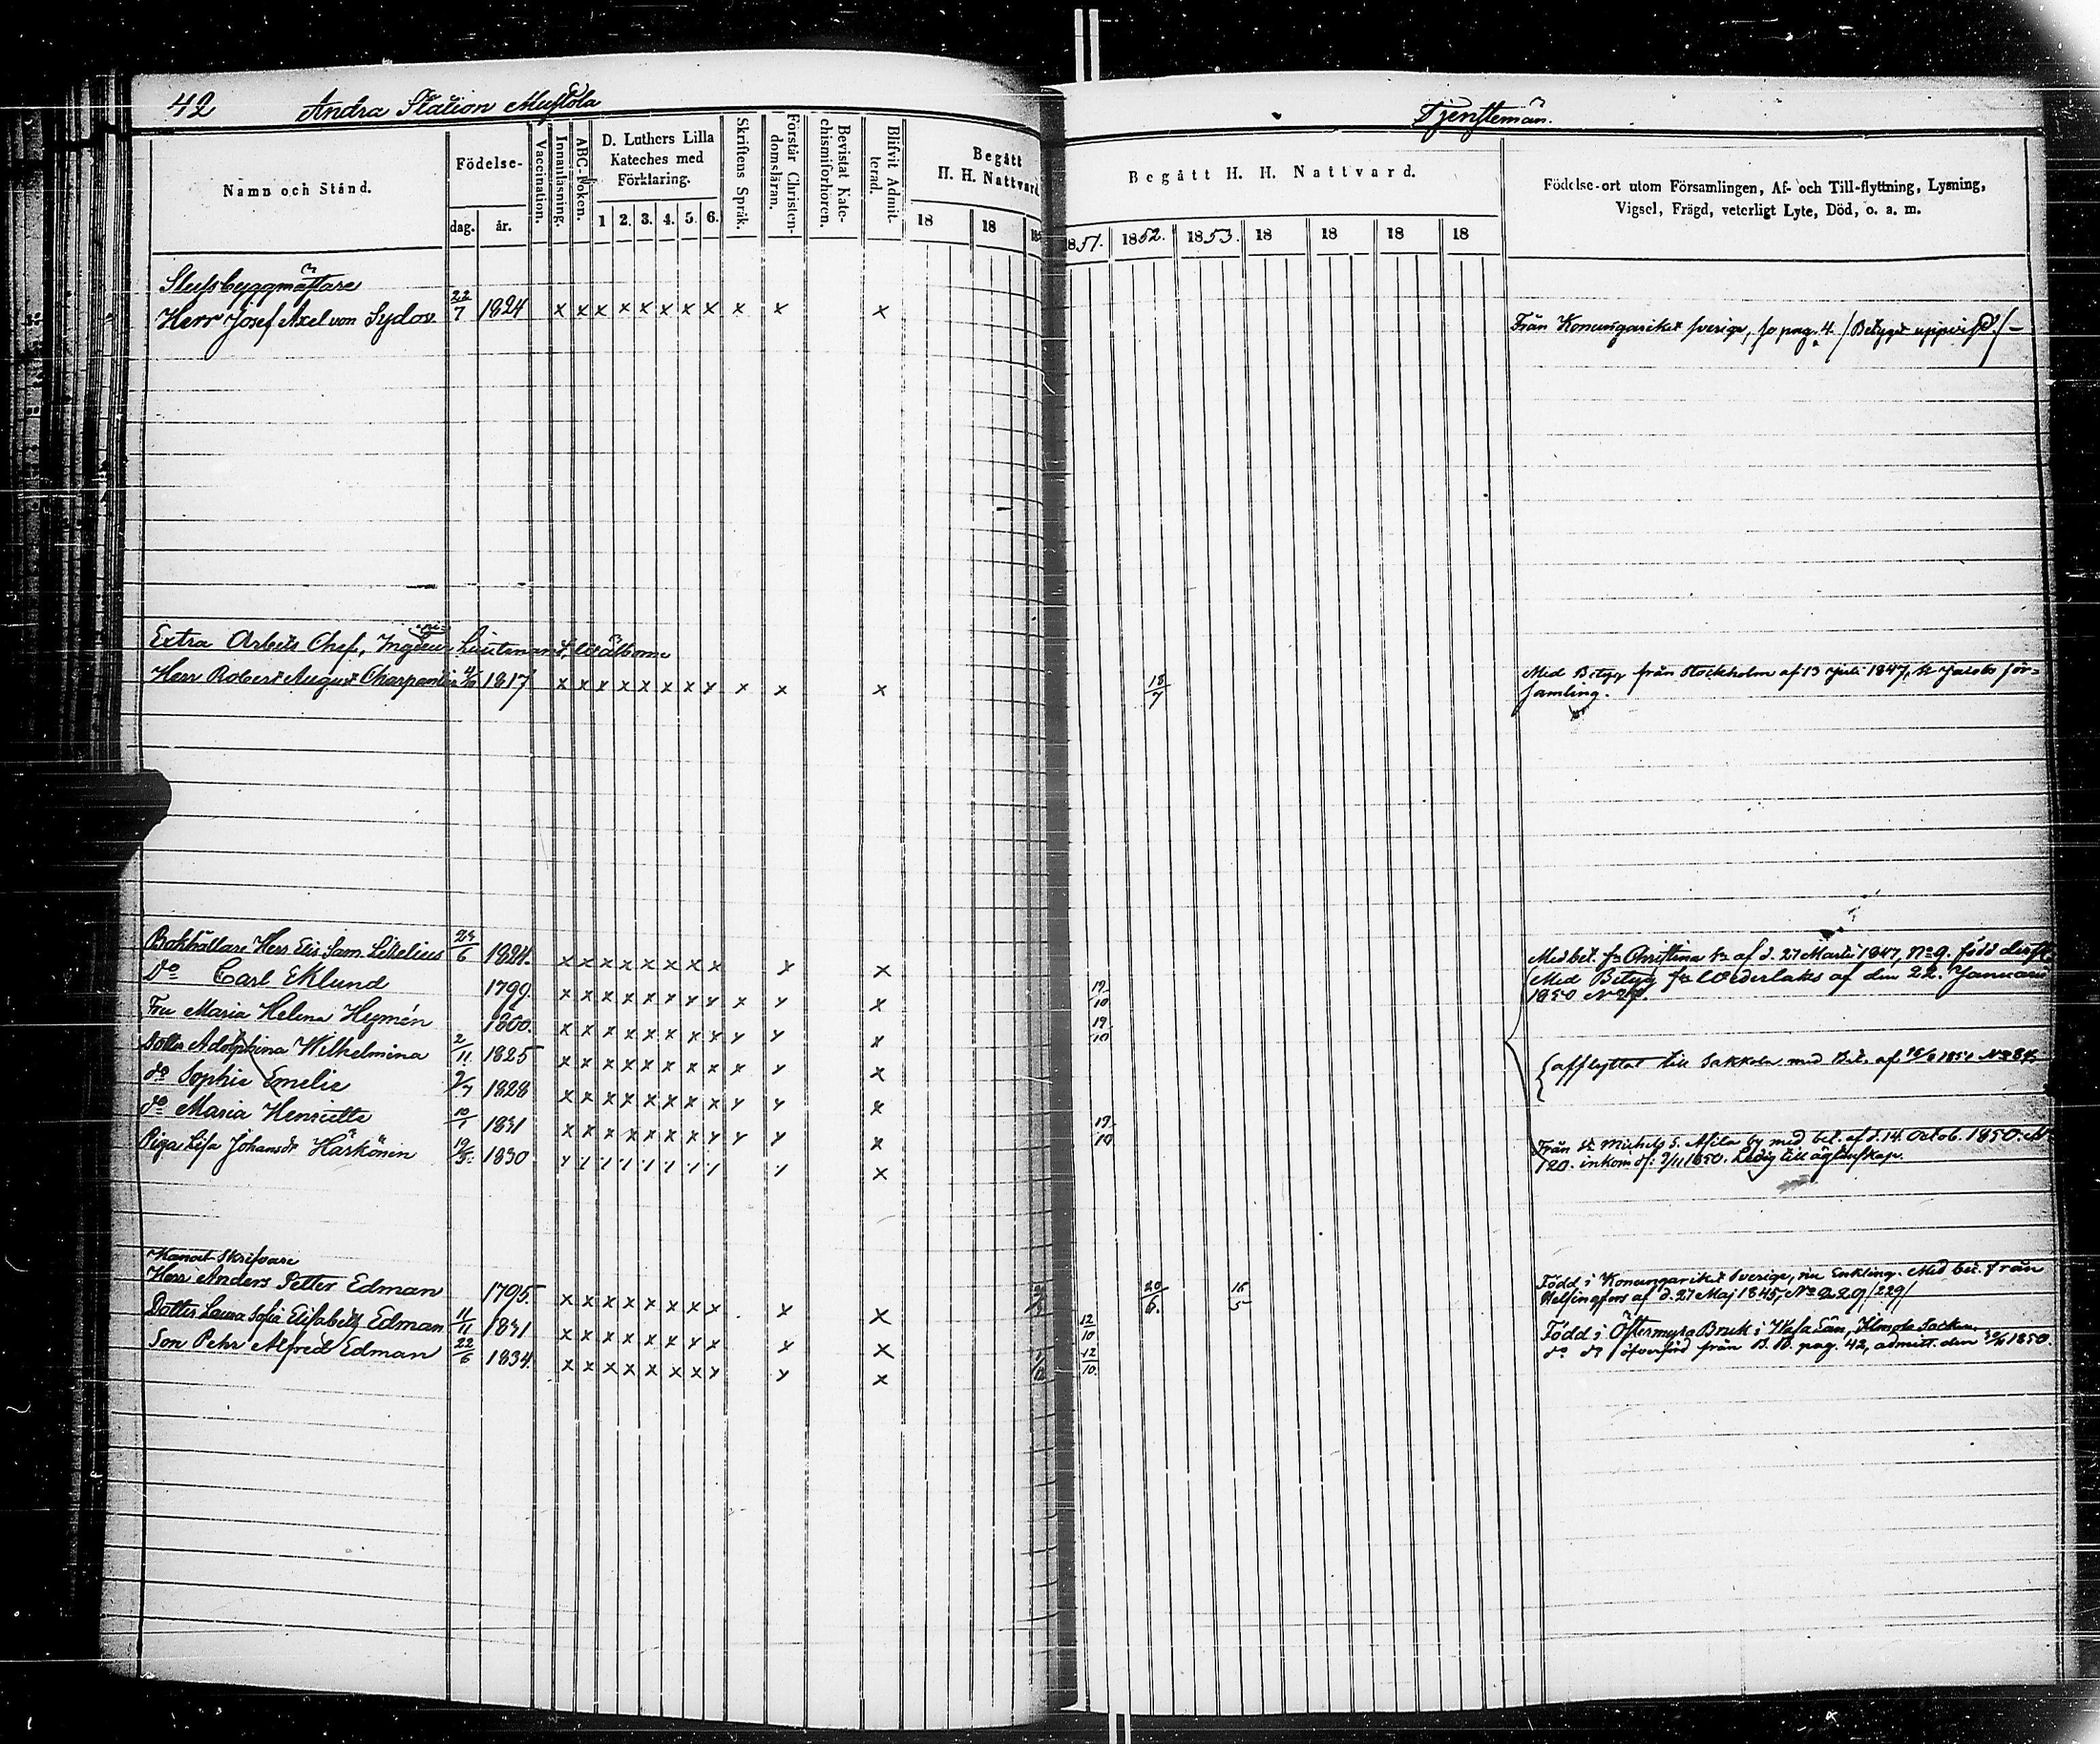 42 Andra Station Mustola
Tjenstemän.
Namn och Stånd.
Födelse-
dag. år.
Vaccination.
Innanläsning.
ABC-Boken.
D. Luthers Lilla
Kateches med
Förklaring.
1 2. 3. 4. 5. 6.
Skriftens Språk.
Förstår Christen-
domsläran.
Bevistat Kate-
chismiförhören.
Blifvit Admit-
terad.
Begått
H. H. Nattvard
18 18
Begått H. H. Nattvard.
1851. 1852. 1853. 18 18 18 18
Födelse-ort utom Församlingen, Af- och Till-flyttning, Lysning,
Vigsel, Frägd, veterligt Lyte, Död, o. a. m.
Slussbyggmästare
Herr Josef Axel von Sydow 22/7 1824 x x x x x x x x x x x Från Konungariket Sverige, se pag. 4. /Betyget uppvist/
Extra Arbets Chef, Ingeni Lieutenant,
Herr Robert August Charpentier 1817 x x x x x x x x x x x 18/7 Med Betyg från Stockholm af 13 Juli 1847, St Jacobs för-
samling.
Bokhållare Herr Elis Sam. 1824. x x x x x x x x x x Med bet. fr Christina af d. 27 Martii 1847, No 9. född
Do Carl Eklund 1799. x x x x x x x x x x x 19/10 Med Betyg fr Wederlaks af den 22. Januarii
1850 No 27.
Fru Maria Helena Hymén 1800. x x x x x x x x x x x 19/10
Dotter Adolphina Wilhelmina 2/11 1825 x x x x x x x x x x x afflyttat till Sakkola med Bet. af
do Sophie Emelie 9/7 1828 x x x x x x x x x x x
do Maria Henriette 10/1 1831 x x x x x x x x x x x 19/10
Piga Lisa Johansdr Härkönen 19/5 1830 x x Från St Michels S. by med bet. af d. 14. Octob. 1850. No
120. inkom d: 9/11 1850. Ledig till ägtenskap.
Kanal Skrifvare
Herr Anders Petter Edman 1795. x x x x x x x x x x 20/6. 15/5 Född i Konungariket Sverige, nu Enkling. Med bet. från
Helsingfors af d. 27 Maj 1845, No 229/229/
Dotter Laura Sofia Elisabeth Edman 11/11 1831 x x x x x x x x x x 12/10 Född i Östermyra Bruk i Wasa Län, Ilmola Socken.
Son Pehr Alfred Edman 22/6 1834. x x x x x x x x x x 12/10. do do öfverförd från B. B. pag. 42, admitt. den 30/6 1850.